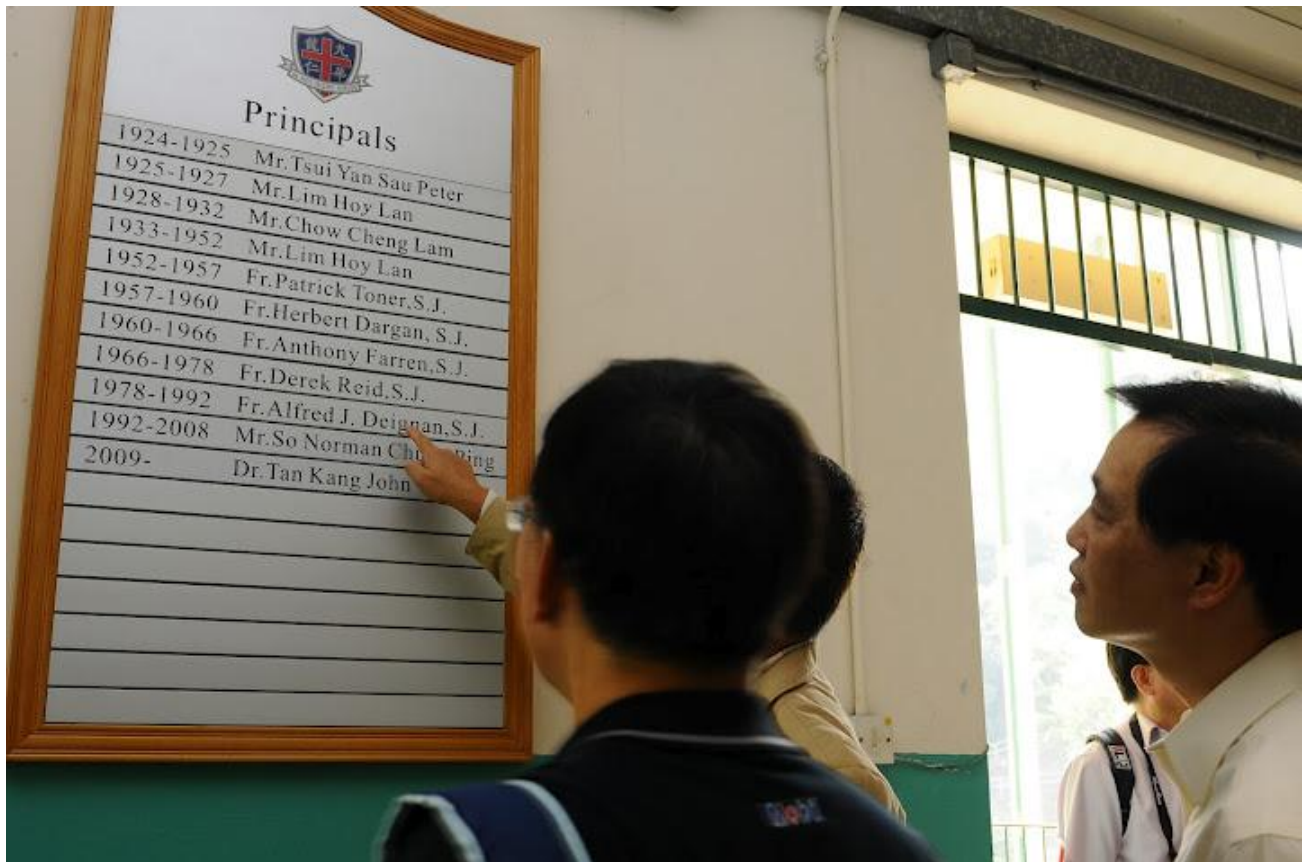 九龍
華仁
Principals
1924-1925 Mr.Tsui Yan Sau Peter
1925-1927 Mr.Lim Hoy Lan
1928-1932 Mr.Chow Cheng Lam
1933-1952 Mr.Lim Hoy Lan
1952-1957 Fr.Patrick Toner,S.J.
1957-1960 Fr.Herbert Dargan, S.J.
1960-1966 Fr.Anthony Farren,S.J.
1966-1978 Fr.Derek Reid,S.J.
1978-1992 Fr.Alfred J. Deignan,S.J.
1992-2008 Mr.So Norman Ping
2009- Dr.Tan Kang John